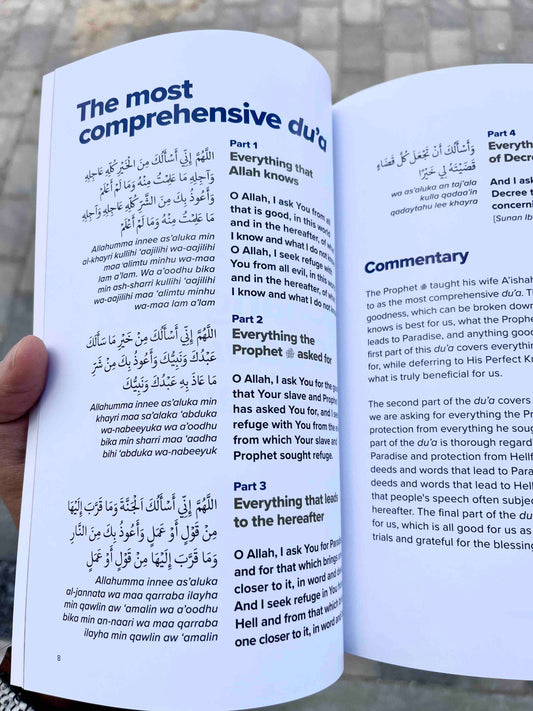 The most
comprehensive du'a
اللَّهُمَّ إِنِّي أَسْأَلُكَ مِنَ الْخَيْرِ كُلِّهِ عَاجِلِهِ
وَآجِلِهِ مَا عَلِمْتُ مِنْهُ وَمَا لَمْ أَعْلَمْ
وَأَعُوذُ بِكَ مِنَ الشَّرِّ كُلِّهِ عَاجِلِهِ وَآجِلِهِ
مَا عَلِمْتُ مِنْهُ وَمَا لَمْ أَعْلَمْ
Allahumma innee as'aluka min
al-khayri kullihi 'aajilihi wa-aajilihi
maa 'alimtu minhu wa-maa
lam a'lam. Wa a'oodhu bika
min ash-sharri kullihi 'aajilihi
wa-aajilihi maa 'alimtu minhu
wa-maa lam a'lam
Part 1
Everything that
Allah knows
O Allah, I ask You from all
that is good, in this world
and in the hereafter, of what
I know and what I do not know.
O Allah, I seek refuge with
You from all evil, in this world
and in the hereafter, of what
I know and what I do not know
اللَّهُمَّ إِنِّي أَسْأَلُكَ مِنْ خَيْرِ مَا سَأَلَكَ
عَبْدُكَ وَنَبِيُّكَ وَأَعُوذُ بِكَ مِنْ شَرِّ
مَا عَاذَ بِهِ عَبْدُكَ وَنَبِيُّكَ
Allahumma innee as'aluka min
khayri maa sa'alaka 'abduka
wa-nabeeyuka wa a'oodhu
bika min sharri maa 'aadha
bihi 'abduka wa-nabeeyuk
Part 2
Everything the
Prophet ﷺ asked for
O Allah, I ask You for the good
that Your slave and Prophet
has asked You for, and I seek
refuge with You from the
from which Your slave and
Prophet sought refuge.
اللَّهُمَّ إِنِّي أَسْأَلُكَ الْجَنَّةَ وَمَا قَرَّبَ إِلَيْهَا
مِنْ قَوْلٍ أَوْ عَمَلٍ وَأَعُوذُ بِكَ مِنَ النَّارِ
وَمَا قَرَّبَ إِلَيْهَا مِنْ قَوْلٍ أَوْ عَمَلٍ
Allahumma innee as'aluka
al-jannata wa maa qarraba ilayha
min qawlin aw 'amalin wa a'oodhu
bika min an-naari wa maa qarraba
ilayha min qawlin aw 'amalin
Part 3
Everything that leads
to the hereafter
O Allah, I ask You for Paradise
and for that which brings
closer to it, in word and
And I seek refuge in You from
Hell and from that which
one closer to it, in word and
8
وَأَسْأَلُكَ أَنْ تَجْعَلَ كُلَّ قَضَاءٍ
قَضَيْتَهُ لِي خَيْرًا
wa as'aluka an taj'ala
kulla qadaa'in
qadaytahu lee khayra
Part 4
of Decre
And I ask
Decree
concerni
[Sunan Ib
Commentary
The Prophet ﷺ taught his wife A'ishah
to as the most comprehensive du'a. T
goodness, which can be broken down
knows is best for us, what the Prophe
leads to Paradise, and anything good
first part of this du'a covers everything
for, while deferring to His Perfect Kn
what is truly beneficial for us.
The second part of the du'a covers
we are asking for everything the Pr
protection from everything he soug
part of the du'a is thorough regard
Paradise and protection from Hellf
deeds and words that lead to Para
deeds and words that lead to Hell
that people's speech often subjec
hereafter. The final part of the du
for us, which is all good for us as
trials and grateful for the blessing